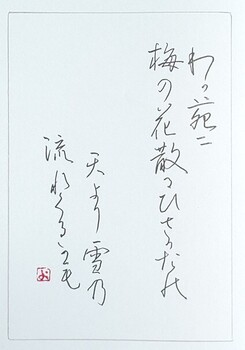 わか苑二
梅の花散るひさかたの
天より雪乃
流れくるかも